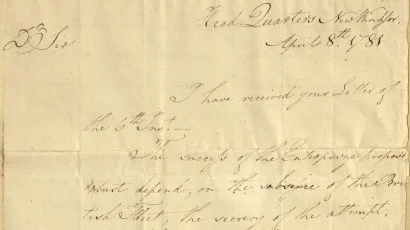 Head Quarters New Windsor.
April 8th. 1781
Dr Sir
I have received your Letter of
the 6th Inst.—
The success of the Enterprize propos'd
must depend, on the absence of the Bri
tish Fleet, the secrecy of the attempt,